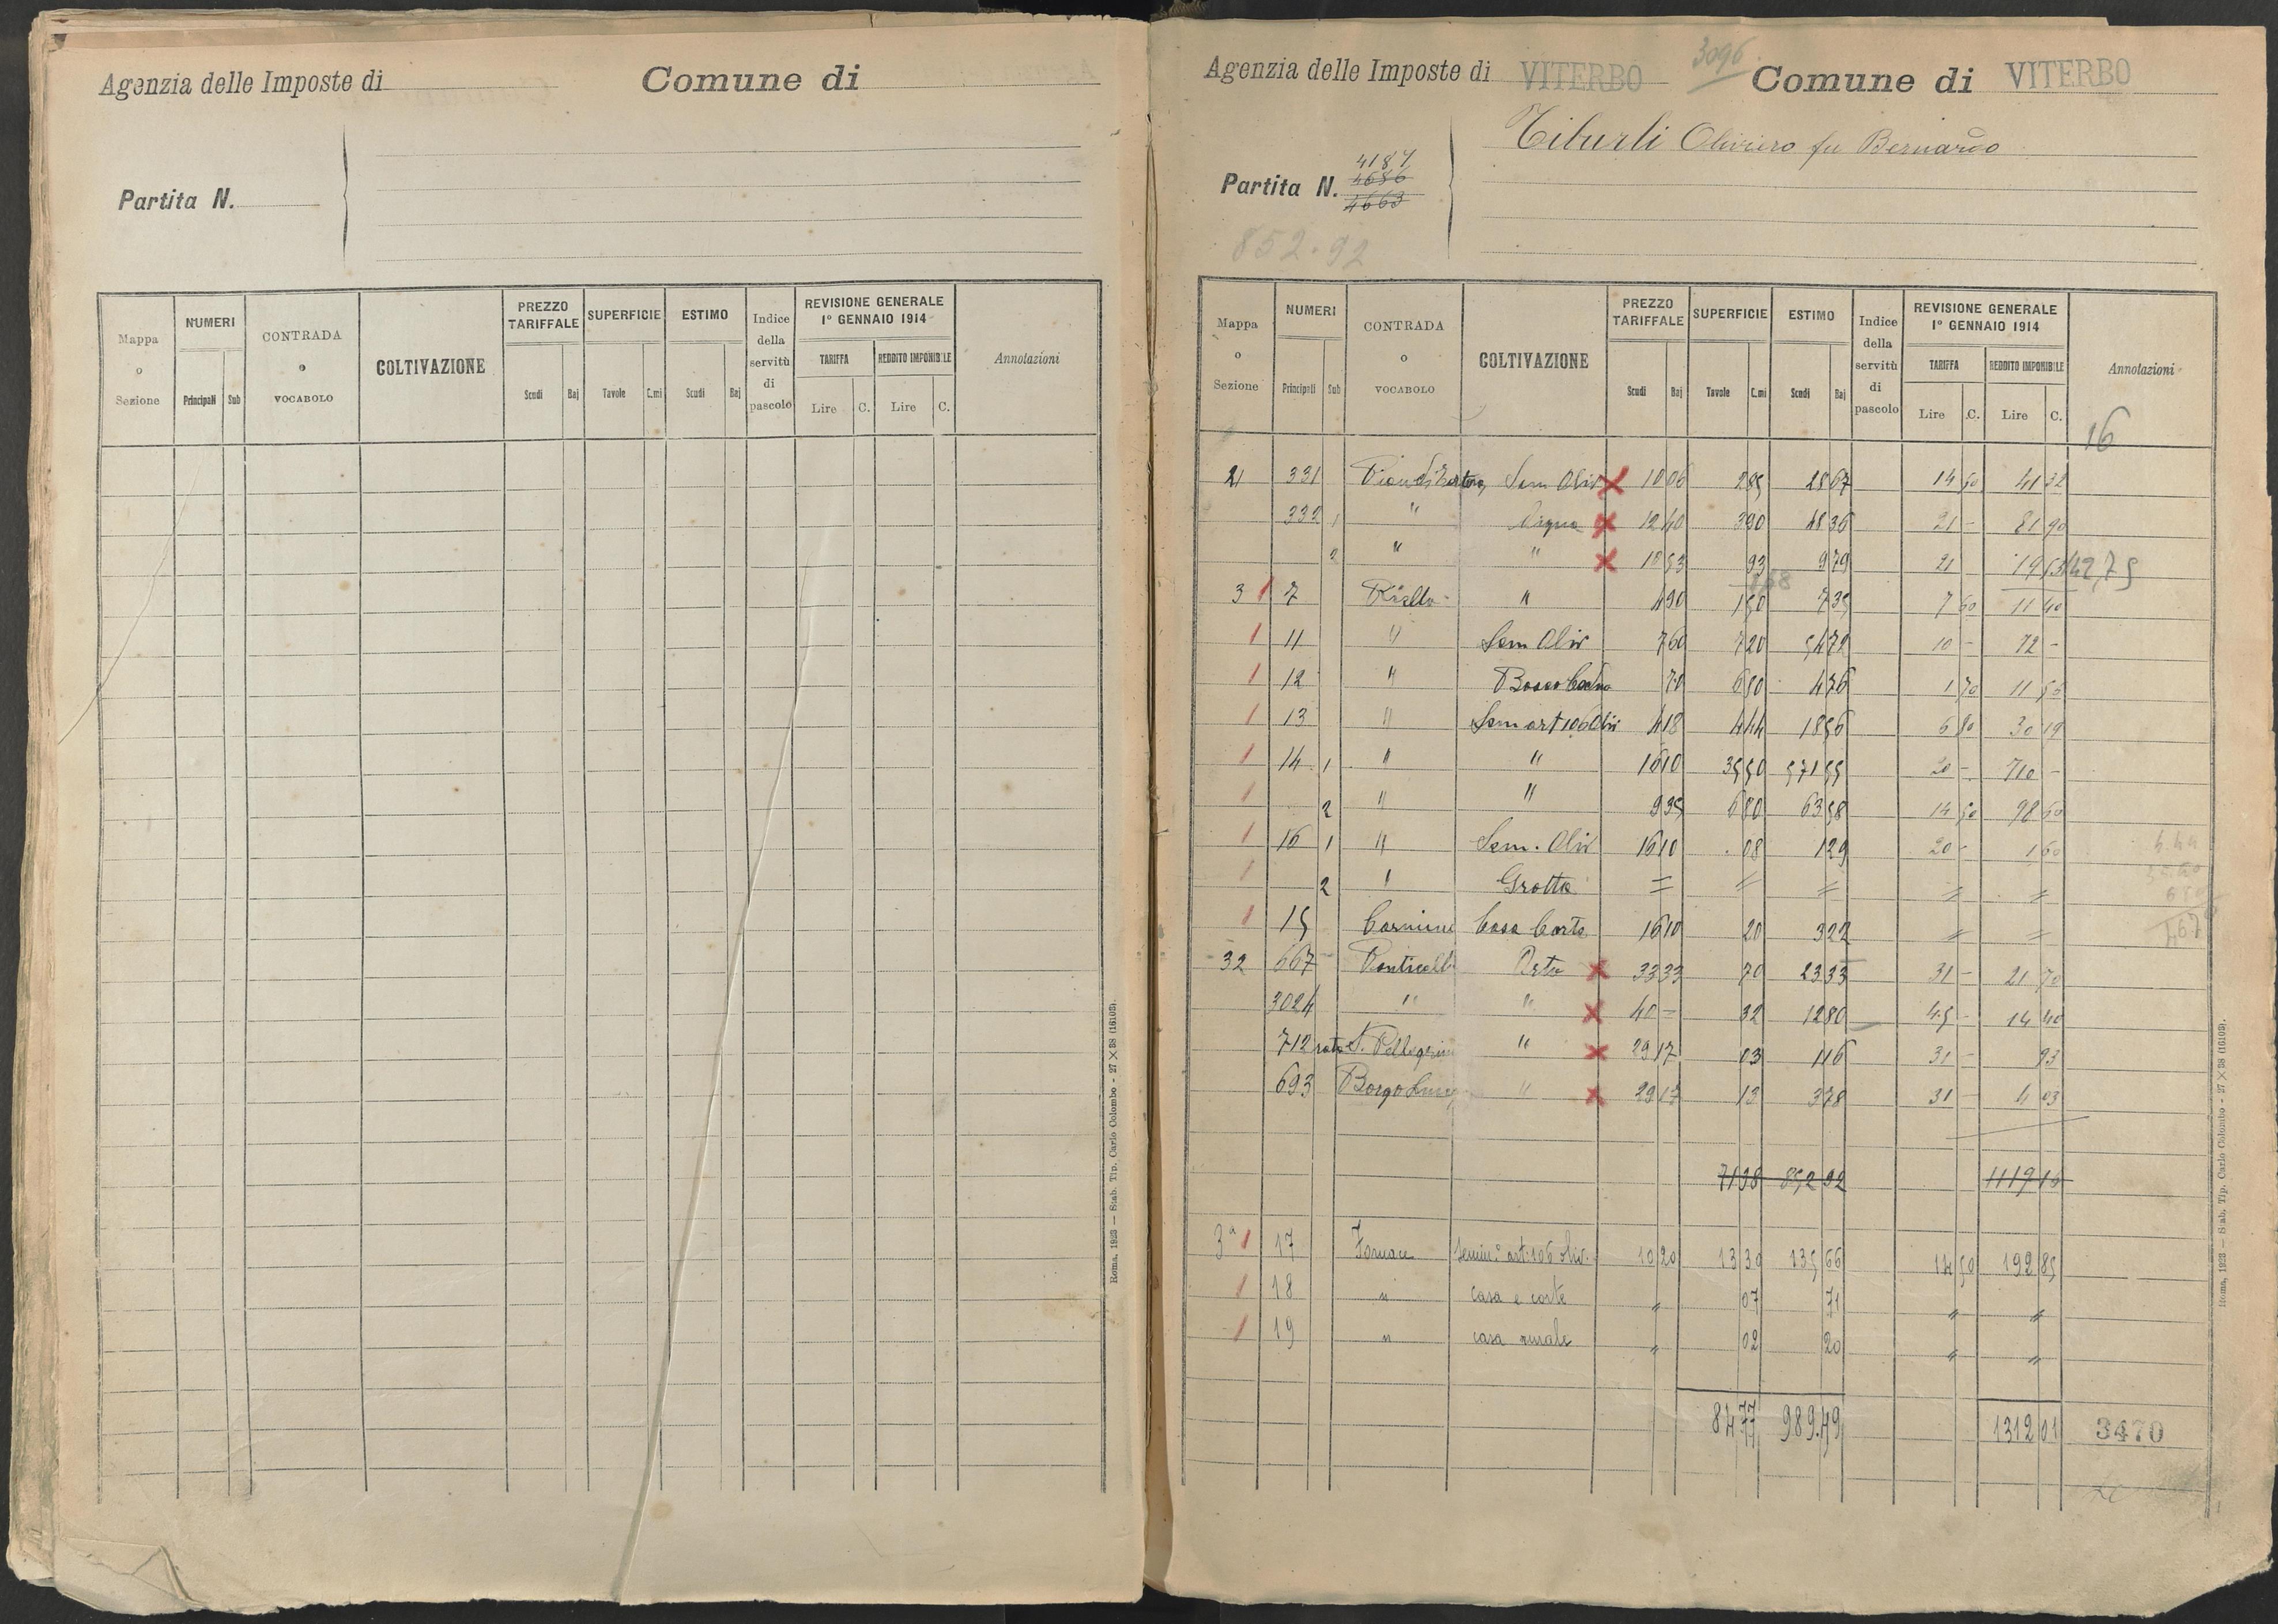 Agenzia delle Imposte di Comune di
Partita N.
Mappa o Sezione NUMERI Principali Sub CONTRADA o VOCABOLO COLTIVAZIONE PREZZO TARIFFALE Scudi Baj SUPERFICIE Tavole C.mi ESTIMO Scudi Baj Indice della servitù di pascolo REVISIONE GENERALE 1° GENNAIO 1914 TARIFFA Lire C. REDDITO IMPONIBILE Lire C. Annotazioni
Roma, 1923 — Stab. Tip. Carlo Colombo - 27 × 38 (16103).
3096
Agenzia delle Imposte di VITERBO Comune di VITERBO
Tiburli Oliviero fu Bernardo
4187
4686
Partita N. 4663
852.92
Mappa o Sezione NUMERI Principali Sub CONTRADA o VOCABOLO COLTIVAZIONE PREZZO TARIFFALE Scudi Baj SUPERFICIE Tavole C.mi ESTIMO Scudi Baj Indice della servitù di pascolo REVISIONE GENERALE 1° GENNAIO 1914 TARIFFA Lire C. REDDITO IMPONIBILE Lire C. Annotazioni
16
21 331 Sem Oliv 10 06 2 85 28 67 14 50 41 32
332 1 " Vigna 12 40 3 90 48 36 21 - 81 90
2 " " 10 53 93 9 79 21 19 53 142,75
3 1 7 Riello " 4 90 1 50 7 35 7 60 11 40
1 11 " Sem Oliv 7 60 7 20 54 72 10 - 72 -
1 12 " Bosco Ceduo 70 6 80 4 76 1 70 11 56
1 13 " Sem art 106 Oliv 4 18 4 44 18 56 6 80 30 19
1 14 1 " " 16 10 35 50 571 55 20 - 710 -
1 2 " " 9 35 6 80 63 58 14 50 98 60
1 16 1 " Sem. Oliv 16 10 . 08 1 29 20 - 1 60
1 2 " Grotta = = = = =
1 15 Carmine Casa Corte 16 10 20 3 22 = =
32 667 Ponticelli Orto 33 33 70 23 33 31 - 21 70
3024 " " 40 = 32 12 80 45 - 14 40
712 rata S. Pellegrino " 29 17 03 1 16 31 - 93
693 Borgo Lungo " 29 17 13 3 78 31 - 4 03
71 38 852 92 1119 16
3ª 1 17 Fornace Semin.º art. 106 oliv. 10 20 13 30 135 66 14 50 192 85
1 18 " casa e corte " 07 71 " "
1 19 " casa rurale " 02 20 " "
84 77 989.49 1312 01 3470
Roma, 1923 — Stab. Tip. Carlo Colombo - 27 × 38 (16103).